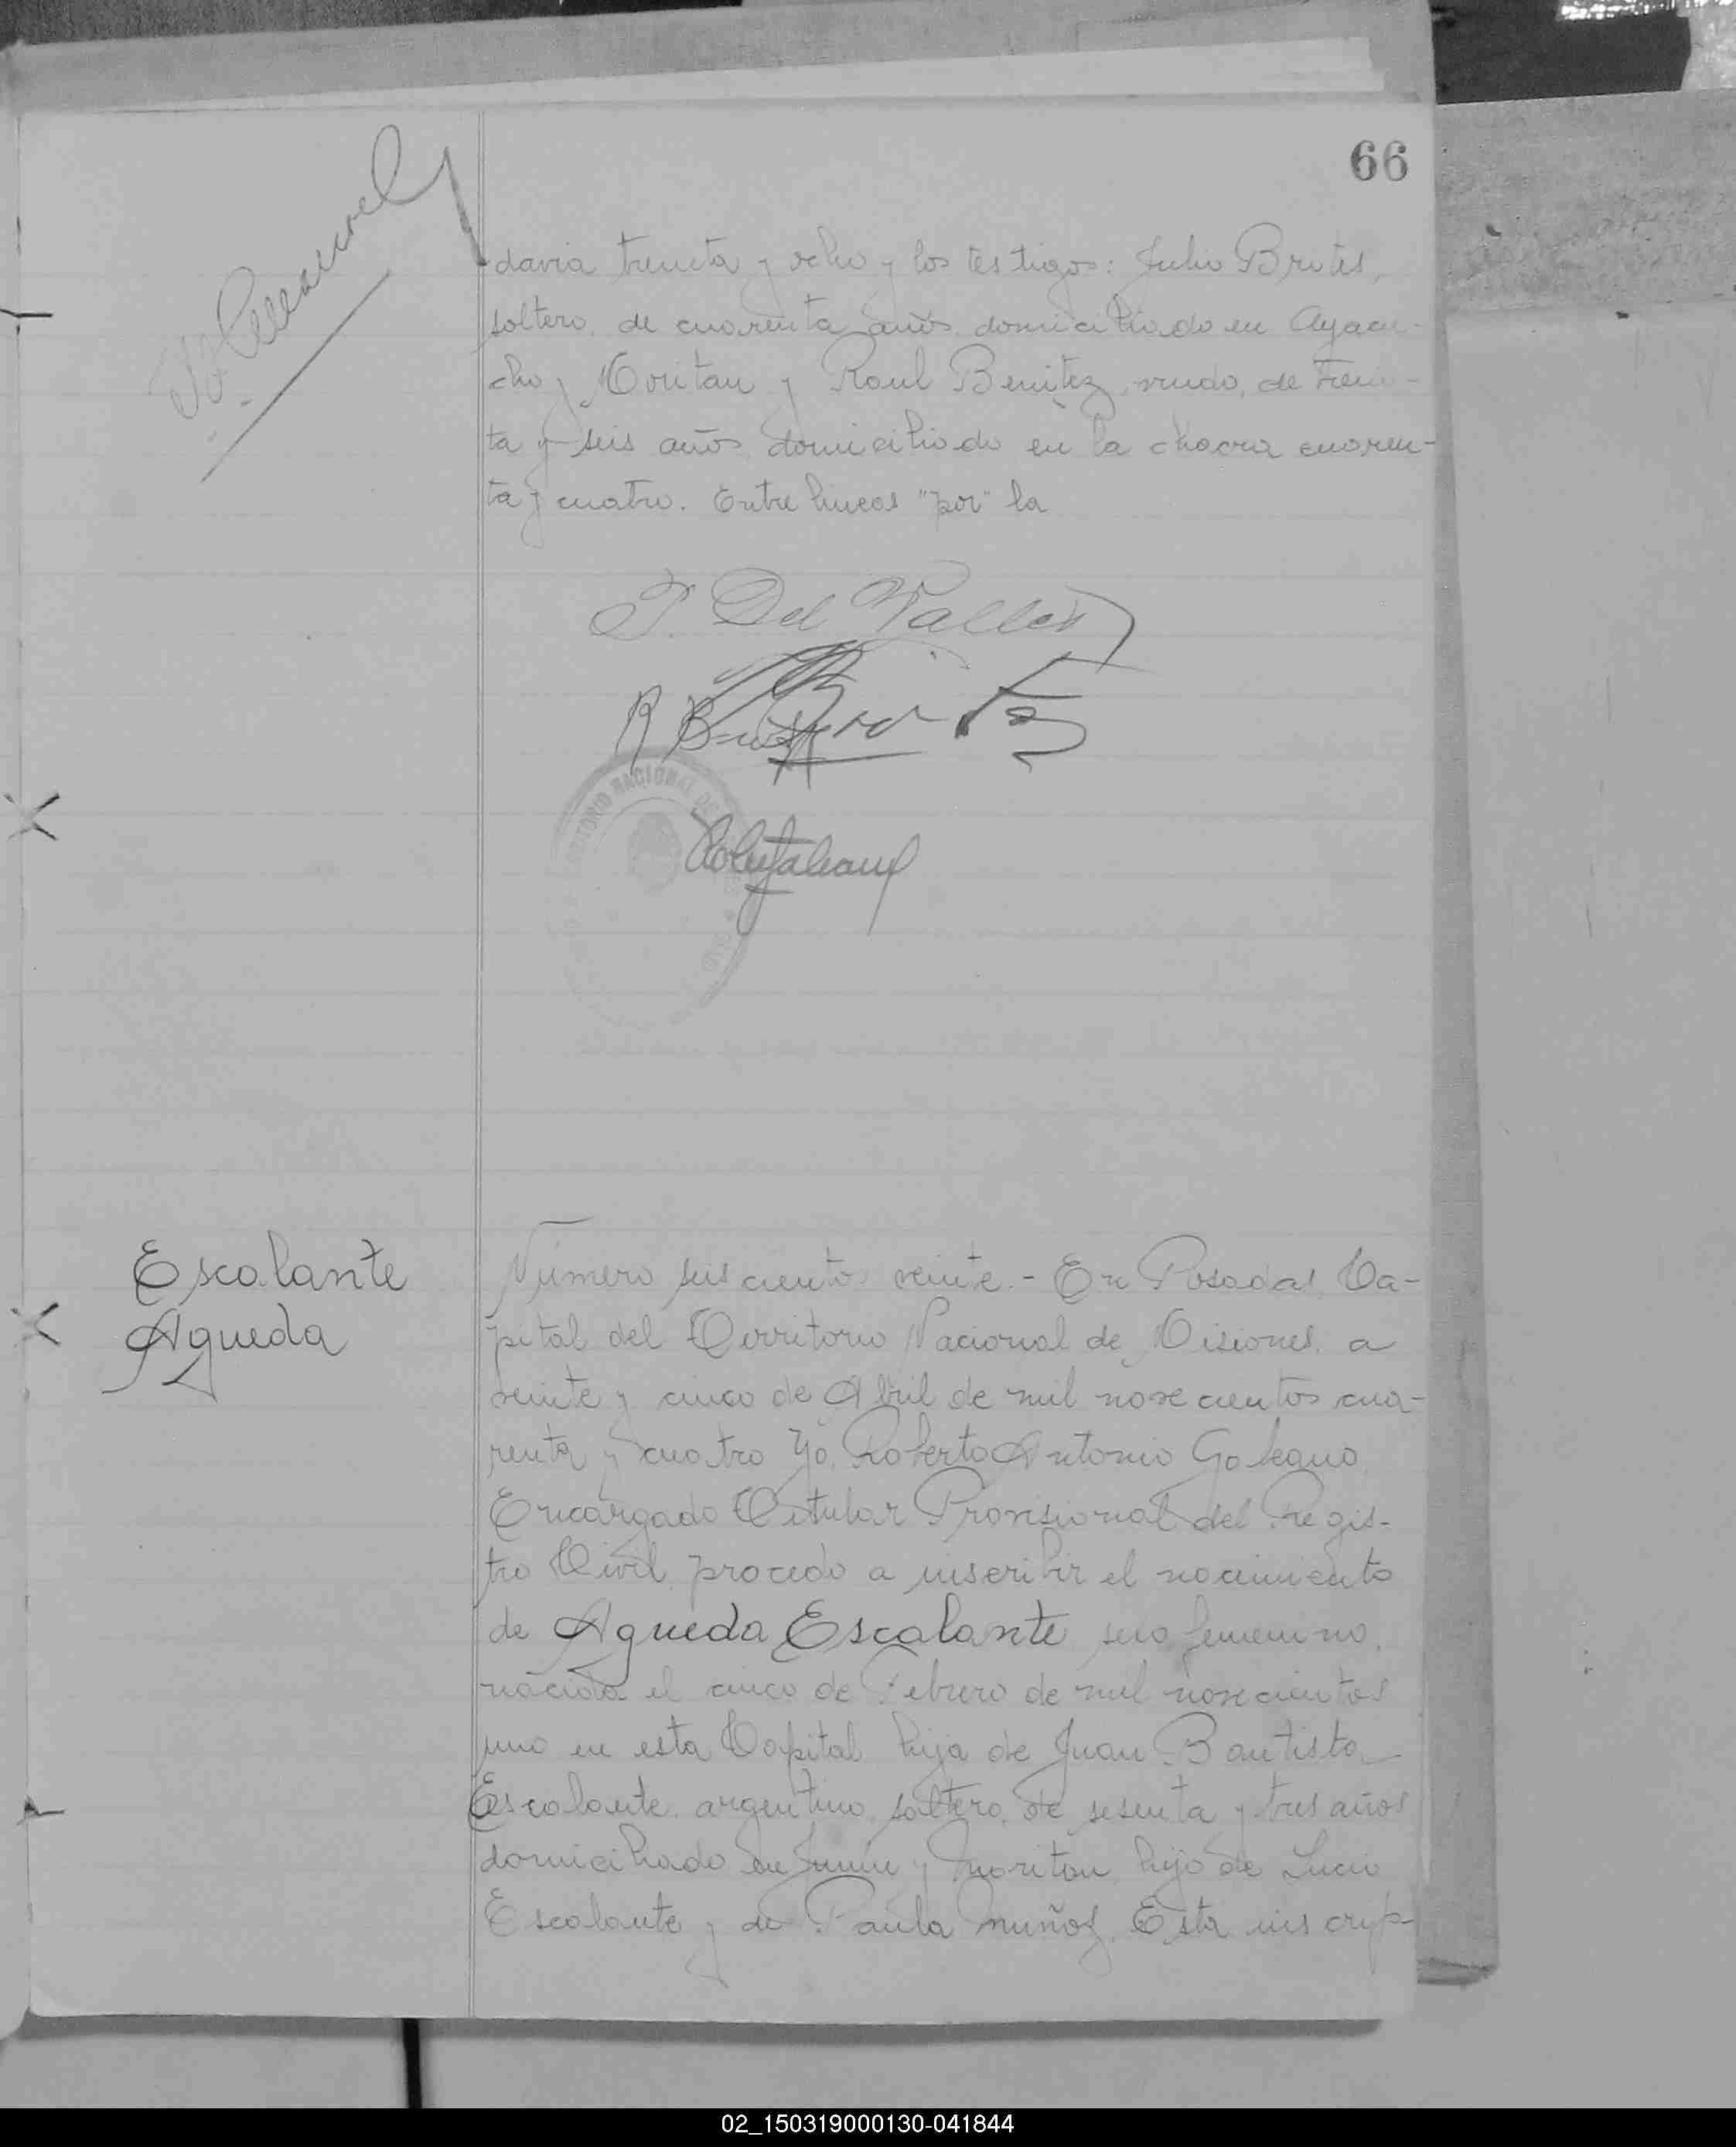 66
davia treinta y ocho y los testigos: Julio Brites,
soltero, de cuarenta años domiciliado en Ayacu-
cho y Moritan y Raul Benitez, viudo, de trein-
ta y seis años domiciliado en la chacra cuaren-
ta y cuatro. Entre lineas "por" la
P. Del Valle
R Benitez
TERRITORIO NACIONAL DE
Escalante
Agueda
Número seis cientos veinte.- En Posadas, Ca-
pital del Territorio Nacional de Misiones, a
veinte y cinco de Abril de mil nove cientos cua-
renta y cuatro Yo, Roberto Antonio Galeano
Encargado Titular Provisional del Regis-
tro Civil, procedo a inscribir el nacimiento
de Agueda Escalante sexo femenino,
nacida el cinco de Febrero de mil novecientos
uno en esta Capital hija de Juan Bautista
Escalante, argentino, soltero, de sesenta y tres años
domiciliado en Junin y Moritan hijo de Lucio
Escalante y de Paula Muñoz. Esta inscrip-
02_150319000130-041844